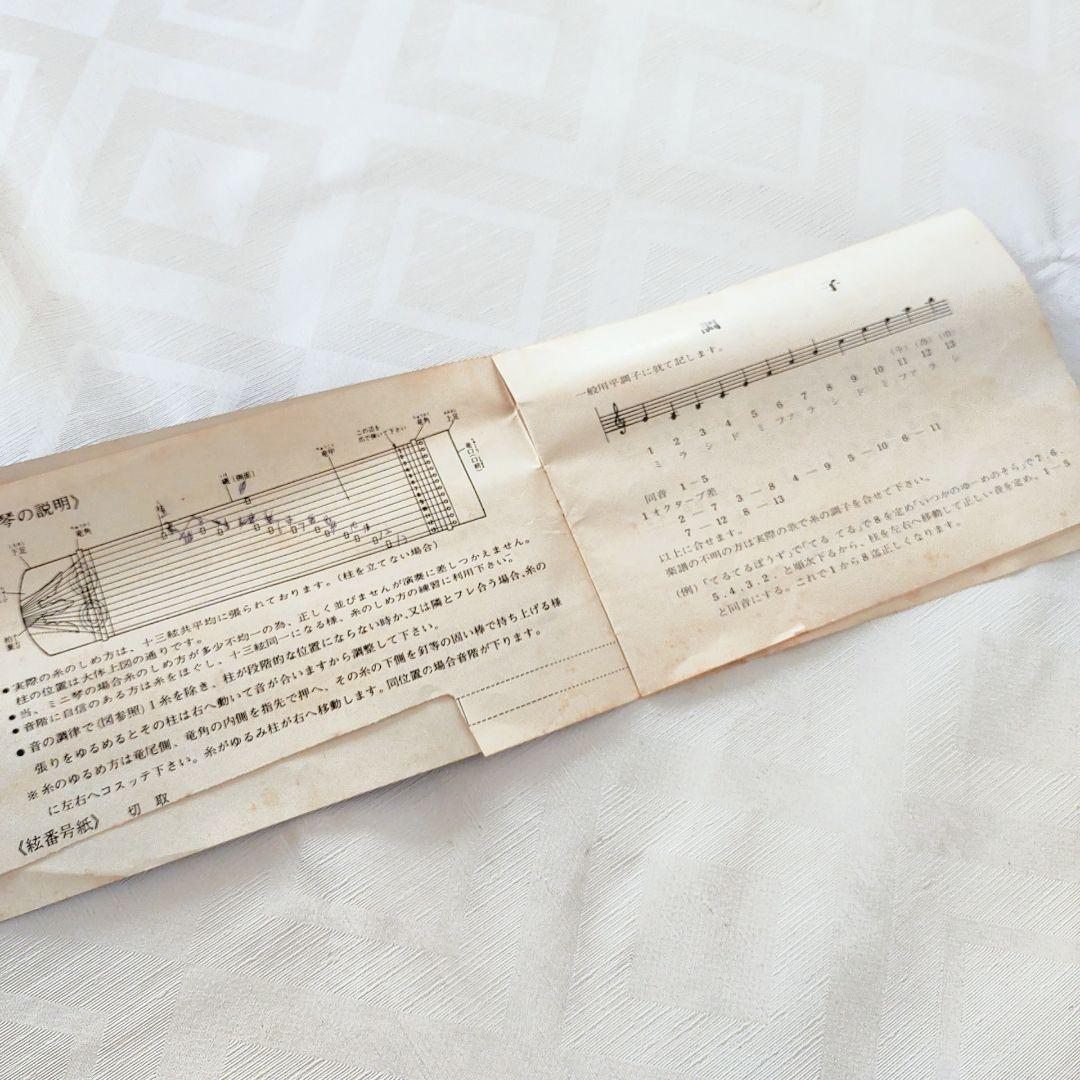 琴の説明》
下足
竜角
柱
磯(側面)
竜甲
この辺を
爪で弾いて下さい
竜角
上足
十三絃共平均に張られております。(柱を立てない場合)
●実際の糸のしめ方は、
柱の位置は大体上図の通りです。
●当、ミニ琴の場合糸のしめ方が多少不均一の為、正しく並びませんが演奏に差しつかえません。
●音階に自信のある方は糸をほぐし、十三絃同一になる様、糸のしめ方の練習に利用下さい。
●音の調律で(図参照)1糸を除き、柱が段階的な位置にならない時か、又は隣とフレ合う場合、糸の
張りをゆるめるとその柱は右へ動いて音が合いますから調整して下さい。
※糸のゆるめ方は竜尾側、竜角の内側を指先で押へ、その糸の下側を釘等の固い棒で持ち上げる様
に左右へコスッテ下さい。糸がゆるみ柱が右へ移動します。同位置の場合音階が下ります。
《絃番号紙》 切取
調 子
一般用平調子に就て記します。
(斗) (為) (巾)
1 2 3 4 5 6 7 8 9 10 11 12 13
ミ ラ シ ド ミ ファ ラ シ ド ミ ファ ラ シ
同音 1−5
1オクターブ差
2−7 3−8 4−9 5−10 6−11
7−12 8−13
以上に合せます。
楽譜の不明の方は実際の歌で糸の調子を合せて下さい。
(例)「てるてるぼうず」で「てる てる」で8を定め「いつかのゆーめのそら」で7.6.
5.4.3.2.と順次下るから、柱を左右へ移動して正しい音を定め、1−5
と同音にする。これで1から8迄正しくなります。